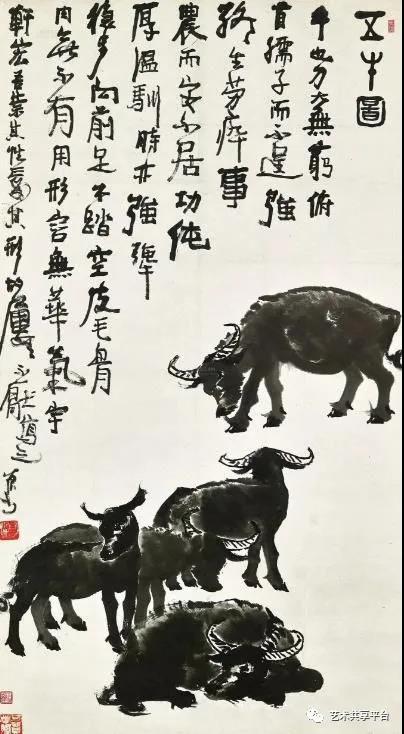 五牛圖
牛也力大無窮俯
首孺子而不逞強
終生勞瘁事
農而安不居功纯
厚温馴時亦強犟
穩步向前足不踏空皮毛骨
角無不有用形容無華氣宇
軒宏吾崇其性愛其形故屢屢不厭寫之 可染
艺术共享平台